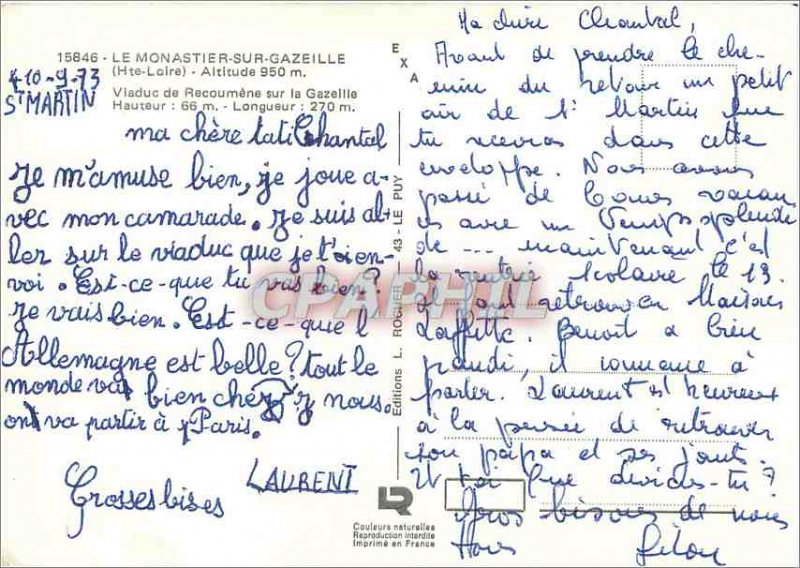 15846 - LE MONASTIER-SUR-GAZEILLE
(Hte-Loire) - Altitude 950 m.
Viaduc de Recoumène sur la Gazeille
Hauteur : 66 m. - Longueur : 270 m.
10-9-73
ST MARTIN
ma chère tati Chantal
Je m'amuse bien, je joue a-
vec mon camarade. Je suis al-
ler sur le viaduc que je t'ien-
voi. Est-ce-que tu vas bien?
Je vais bien. Est-ce-que l
Allemagne est belle? tout le
monde va bien chez nous.
on va partir à Paris.
Grosses bises
LAURENT
EXA
Editions L. ROCHER - 43 - LE PUY
LR
Couleurs naturelles
Reproduction interdite
Imprimé en France
Ma chère Chantal,
Avant de prendre le che-
min du retour un petit
air de St Martin que
tu recevras dans cette
enveloppe. Nous avons
passé de bonnes vacan
es avec un temps splendi
de ... maintenant c'est
la rentrée scolaire le 13.
et pour retrouver
Laffitte. Benoit a bien
grandi, il commence à
parler. Laurent est heureux
à la pensée de retrouver
son papa et ses jouets.
Et toi que deviens-tu?
Gros bisous de nous
CPAPHIL